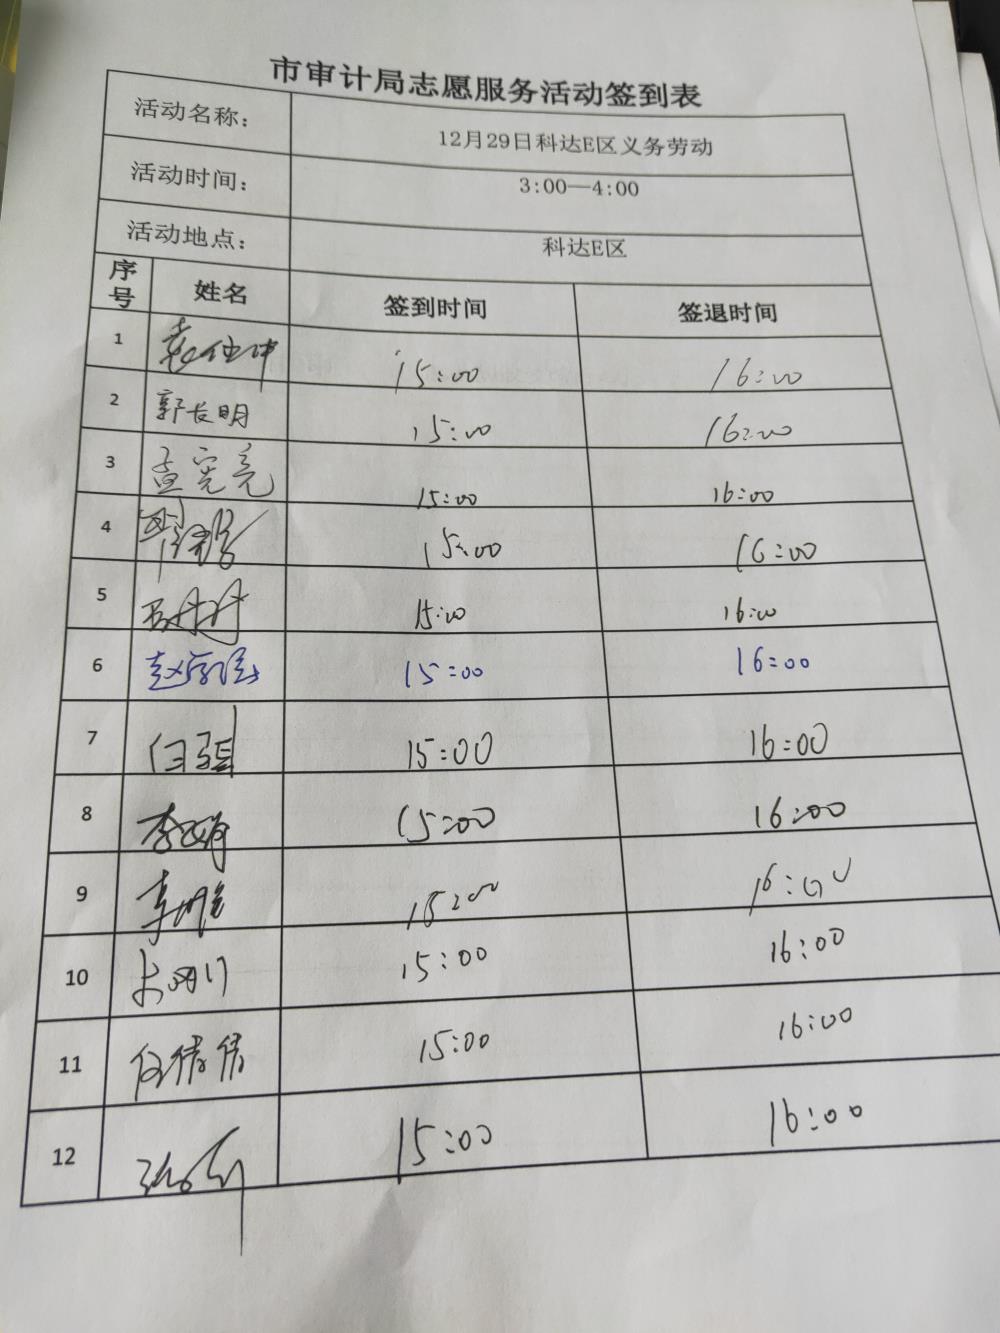 市审计局志愿服务活动签到表
活动名称： 12月29日科达E区义务劳动
活动时间： 3:00—4:00
活动地点： 科达E区
序号 姓名 签到时间 签退时间
1 15:00 16:00
2 郭长明 15:00 16:00
3 孟宪亮 15:00 16:00
4 15:00 16:00
5 15:00 16:00
6 赵 15:00 16:00
7 白强 15:00 16:00
8 李 15:00 16:00
9 李 15:00 16:00
10 15:00 16:00
11 倩倩 15:00 16:00
12 15:00 16:00